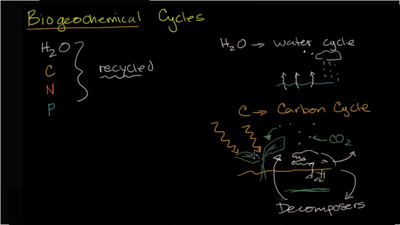 Biogeochemical Cycles
H₂O
C
N
P
recycled
H₂O → water cycle
C → Carbon Cycle
CO₂
Decomposers